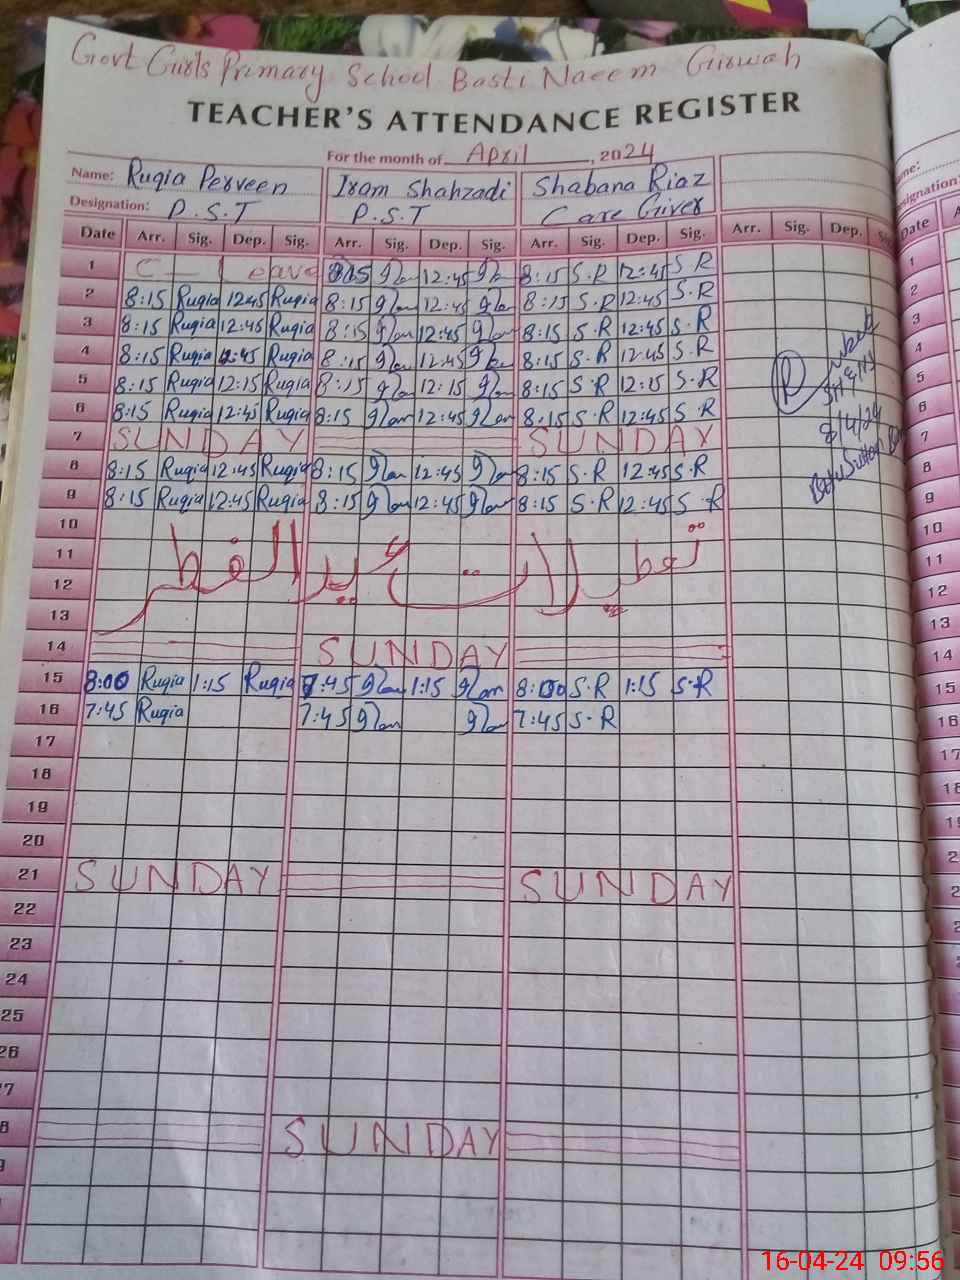 Govt Girls Primary School Basti Naeem Girwah
TEACHER'S ATTENDANCE REGISTER
For the month of April, 2024
Name: Ruqia Perveen Iram Shahzadi Shabana Riaz
Designation: P.S.T P.S.T Care Giver
Date Arr. Sig. Dep. Sig. Arr. Sig. Dep. Sig. Arr. Sig. Dep. Sig. Arr. Sig. Dep.
1 C - Leave 8:15 12:45 8:15 S.R 12:45 S.R
2 8:15 Ruqia 12:45 Ruqia 8:15 12:45 8:15 S.R 12:45 S.R
3 8:15 Ruqia 12:45 Ruqia 8:15 12:45 8:15 S.R 12:45 S.R
4 8:15 Ruqia 12:45 Ruqia 8:15 12:45 8:15 S.R 12:45 S.R
5 8:15 Ruqia 12:15 Ruqia 8:15 12:15 8:15 S.R 12:15 S.R
6 8:15 Ruqia 12:45 Ruqia 8:15 12:45 8:15 S.R 12:45 S.R
7 SUNDAY SUNDAY
8 8:15 Ruqia 12:45 Ruqia 8:15 12:45 8:15 S.R 12:45 S.R
9 8:15 Ruqia 12:45 Ruqia 8:15 12:45 8:15 S.R 12:45 S.R
10
11
تعطیلات عید الفطر
12
13
14 SUNDAY
15 8:00 Ruqia 1:15 Ruqia 7:45 1:15 8:00 S.R 1:15 S.R
16 7:45 Ruqia 7:45 7:45 S.R
17
18
19
20
21 SUNDAY SUNDAY
22
23
24
25
26
SUNDAY
8/4/24
16-04-24 09:56